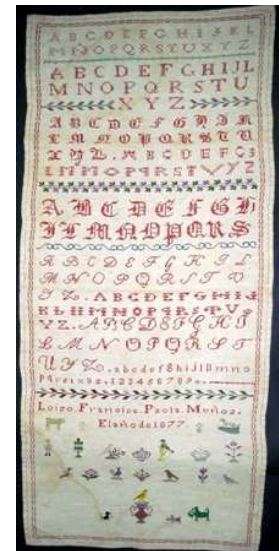 A B C D E F G H I J K L
M N O P Q R S T U X Y Z
A B C D E F G H I J L
M N O P Q R S T U
X Y Z
A B C D E F G H I J K
L M N O P Q R S T U
X Y Z. A B C D E F G
L M N O P Q R S T V Y Z
A B C D E F G H
I L M N O P Q R S
A B C D E F G H I L
M N O P Q R S T V
Y Z. A B C D E F G H I J
K L M N O P Q R S T V
Y Z. A B C D E F G H I
L M N O P Q R S T
U Y Z. a b c d e f g h i j l l m n o
p q r s t u x z. 1 2 3 4 5 6 7 8 9 0.
Francisca Paola Muñoz.
El año de 1877.